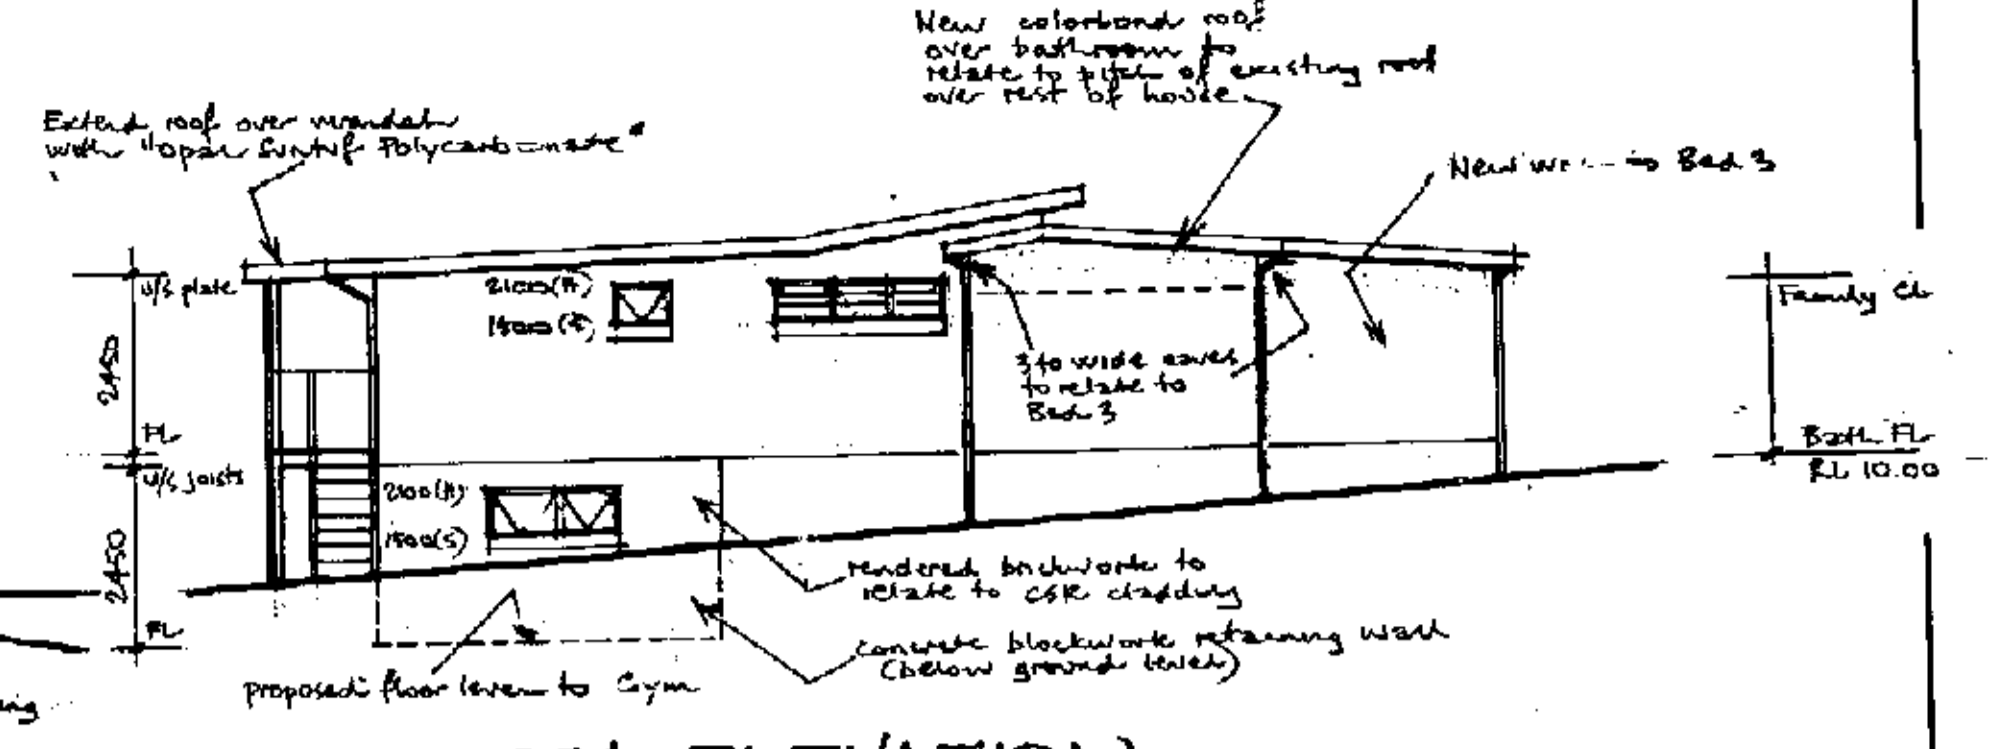 New colorbond roof
over bathroom to
relate to pitch of existing roof
over rest of house
Extend roof over verandah
with "Opal Suntuf Polycarbonate"
New to Bed 3
u/s plate
2100(H)
1500(S)
Family CL
2450
3 to wide eaves
to relate to
Bed 3
FL
Bath FL
RL 10.00
u/s joists
2100(H)
1500(S)
2450
rendered brickwork to
relate to CSR cladding
FL
concrete blockwork retaining wall
(below ground level)
proposed floor level to Gym